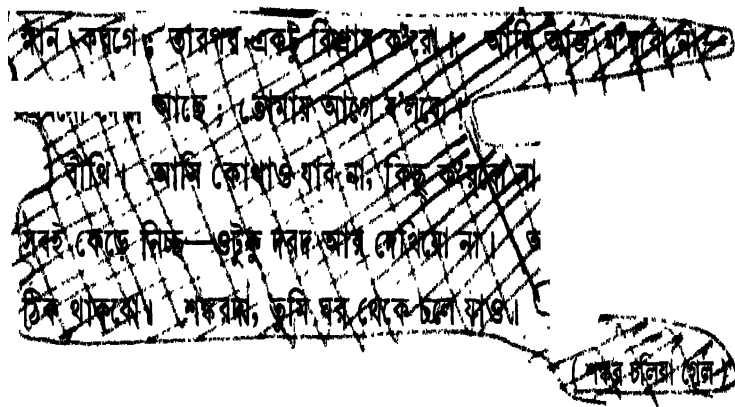 স্নান করগে ; তারপর একটু বিশ্রাম ক'রো । আমি আজ ম'রবো না ।
আছে ; তোমায় আগে ব'লবো ।
বীথি । আমি কোথাও যাব না, কিছু ক'রবো না
সবই কেড়ে নিচ্ছ—ওটুকু দরদ আর দেখিয়ো না ।
ঠিক থাকবো । শঙ্করদা, তুমি ঘর থেকে চলে যাও ।
( শঙ্কর চলিয়া গেল )